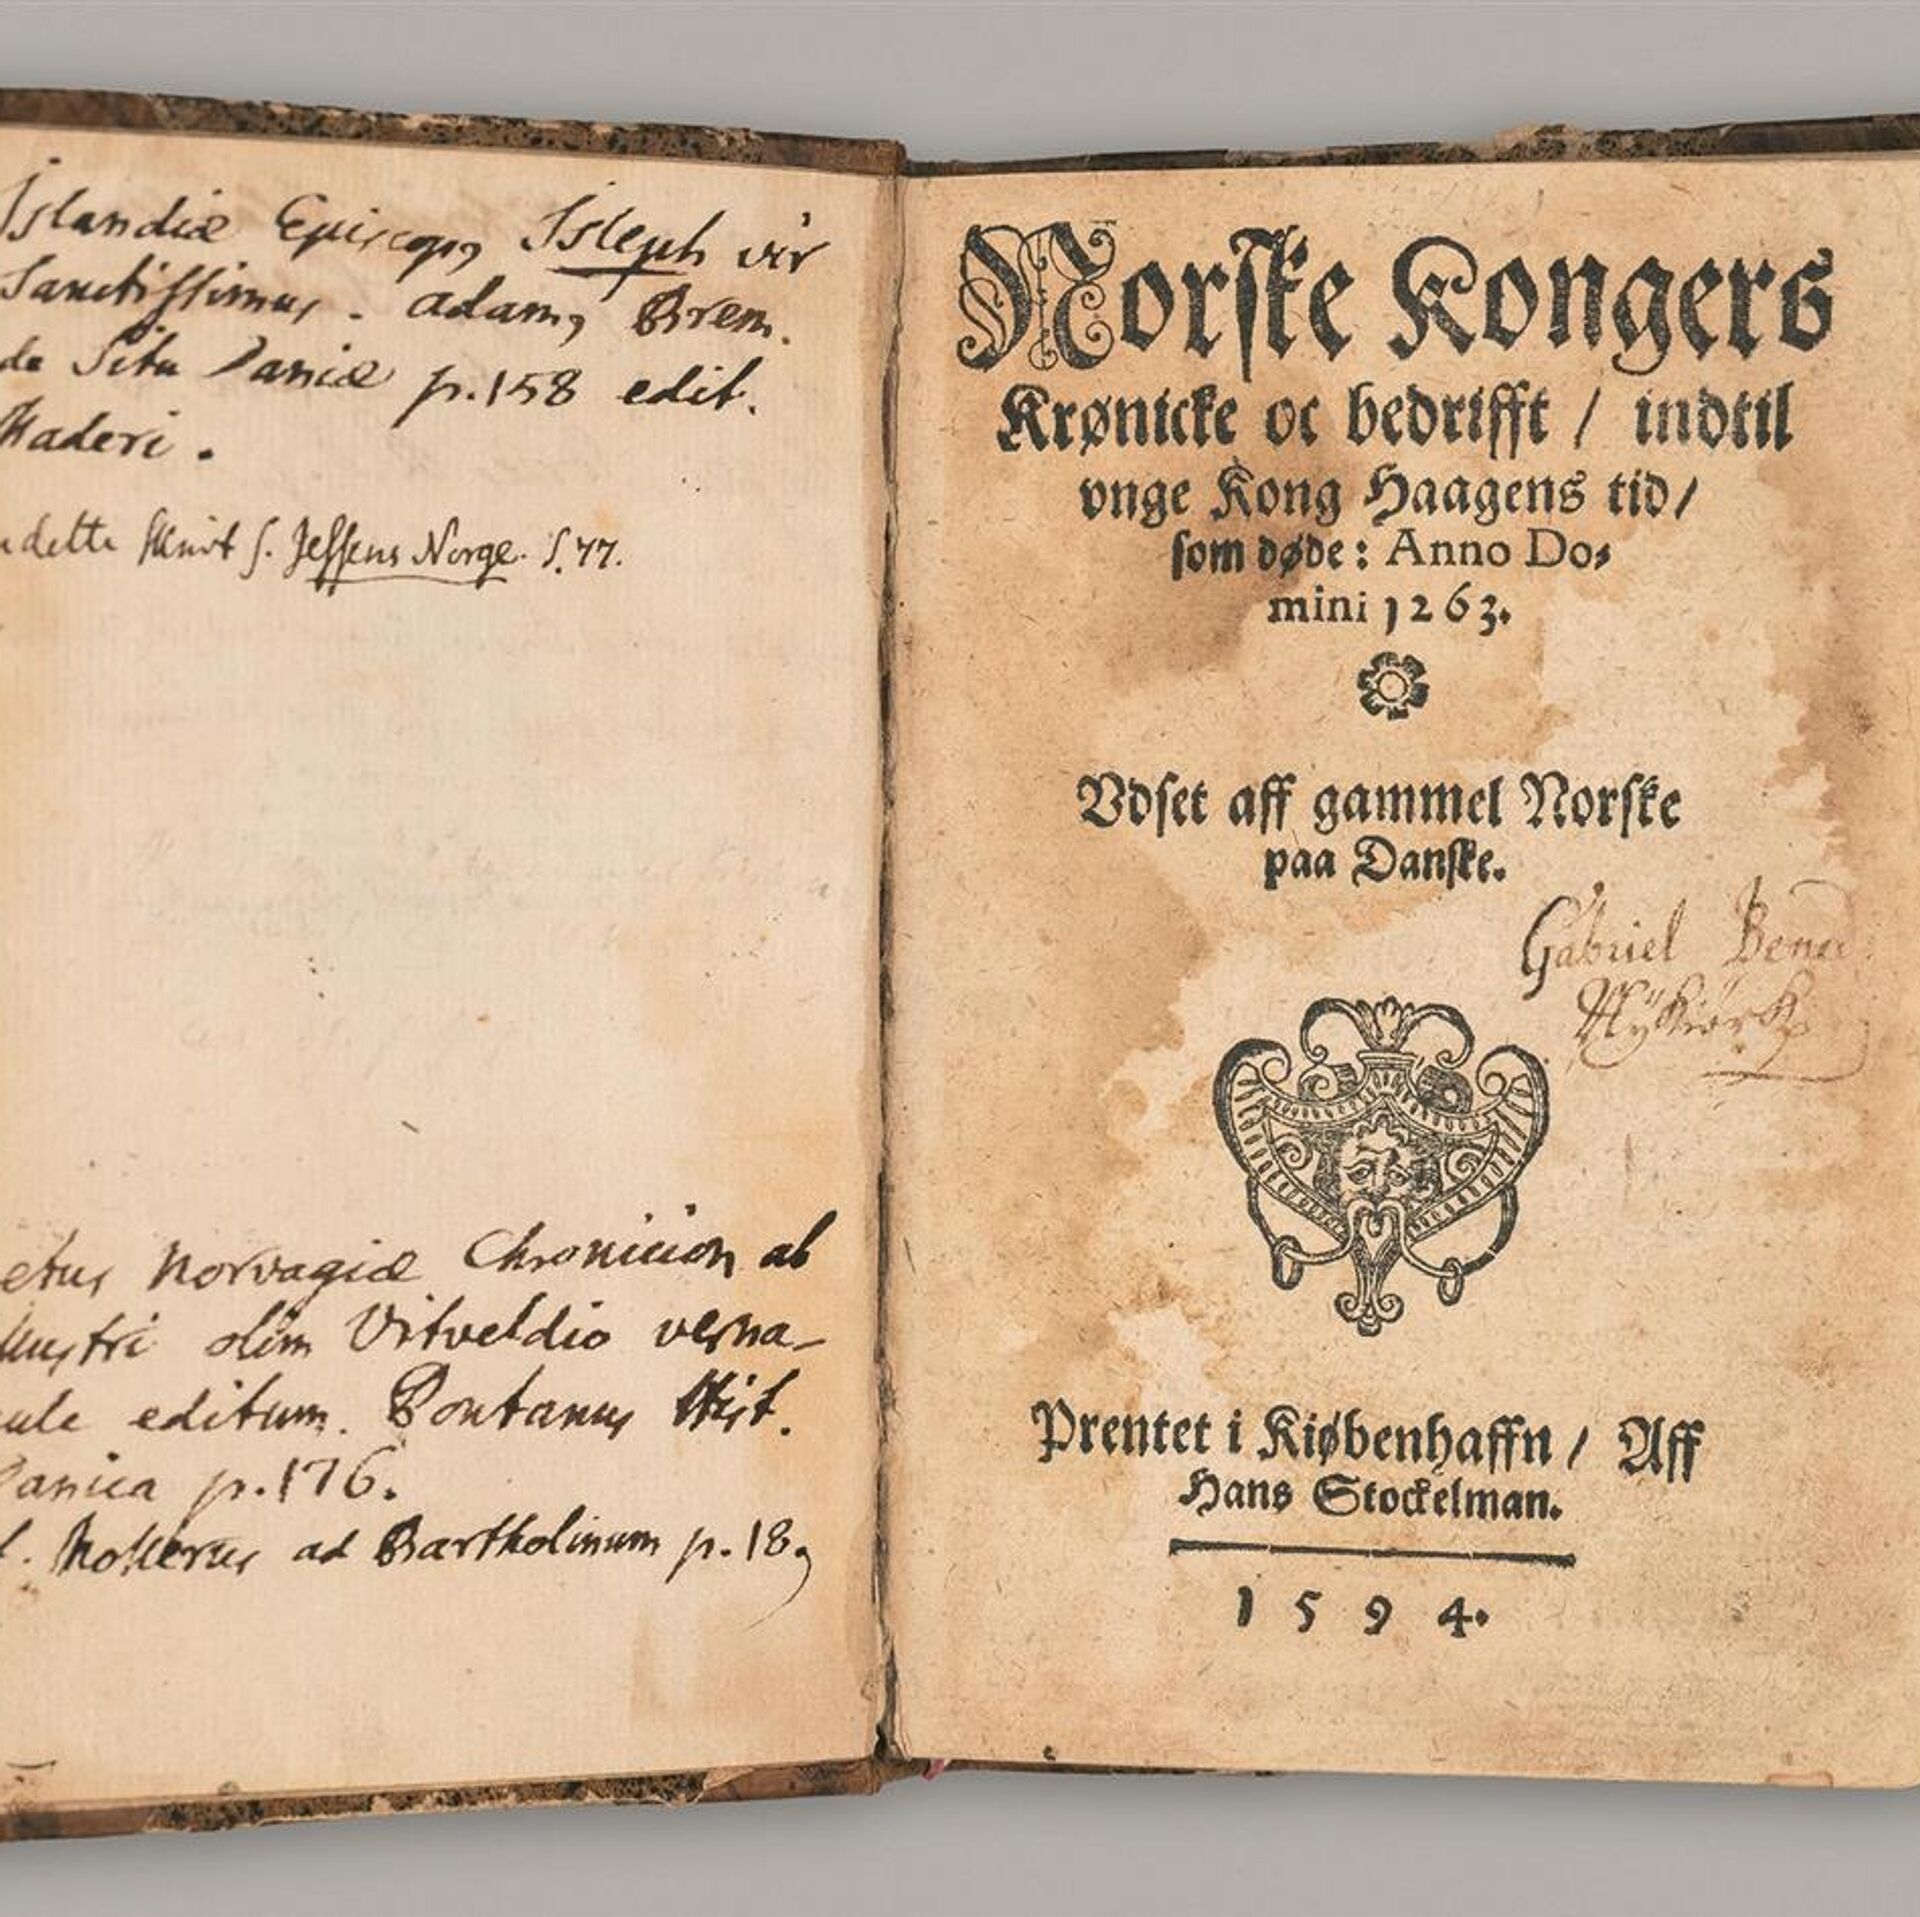 Islandiæ Episcopus Isleph vir
Sanctissimus. Adamus Brem.
de Situ Daniæ p. 158 edit.
Maderi.
dette Skrivt s. Jessens Norge. S. 77.
etus Norvagiæ Chronicion ab
lustri olim Vitveldio verna-
cule editum. Pontanus Hist.
Danica p. 176.
Mollerus ad Bartholinum p. 18.
Norske Kongers
Krønicke oc bedrifft / indtil
vnge Kong Haagens tid /
som døde: Anno Do-
mini 1263.
Vdset aff gammel Norske
paa Danske.
Gabriel
Prentet i Kiøbenhaffn / Aff
Hans Stockelman.
1594.